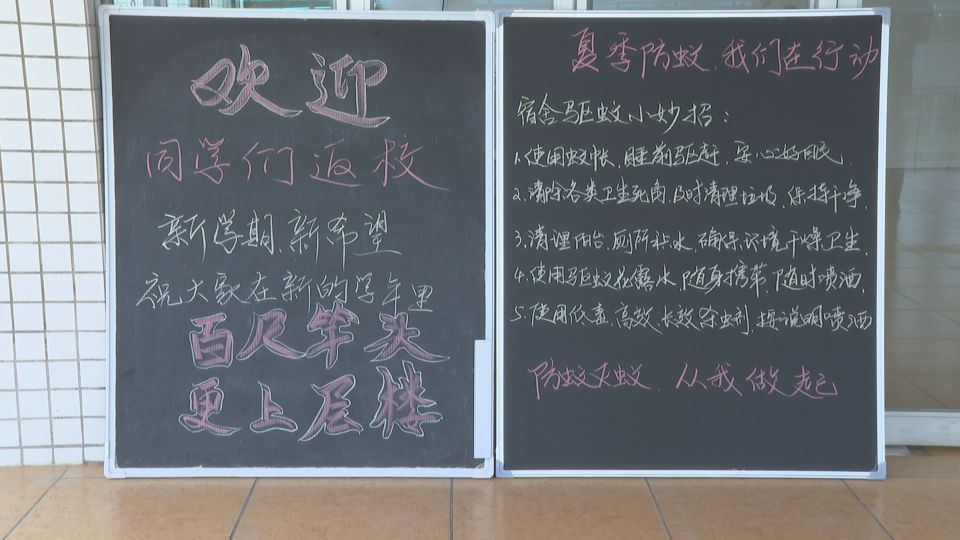 欢迎
同学们返校
新学期,新希望
祝大家在新的学年里
百尺竿头
更上层楼
夏季防蚊,我们在行动
宿舍驱蚊小妙招:
1.使用蚊帐,睡前驱蚊,安心好眠.
2.清除各类卫生死角,及时清理垃圾,保持干净.
3.清理阳台,厕所积水,确保环境干燥卫生
4.使用驱蚊花露水,随身携带,随时喷洒,
5.使用低毒,高效长效杀虫剂,按说明喷洒
防蚊灭蚊,从我做起